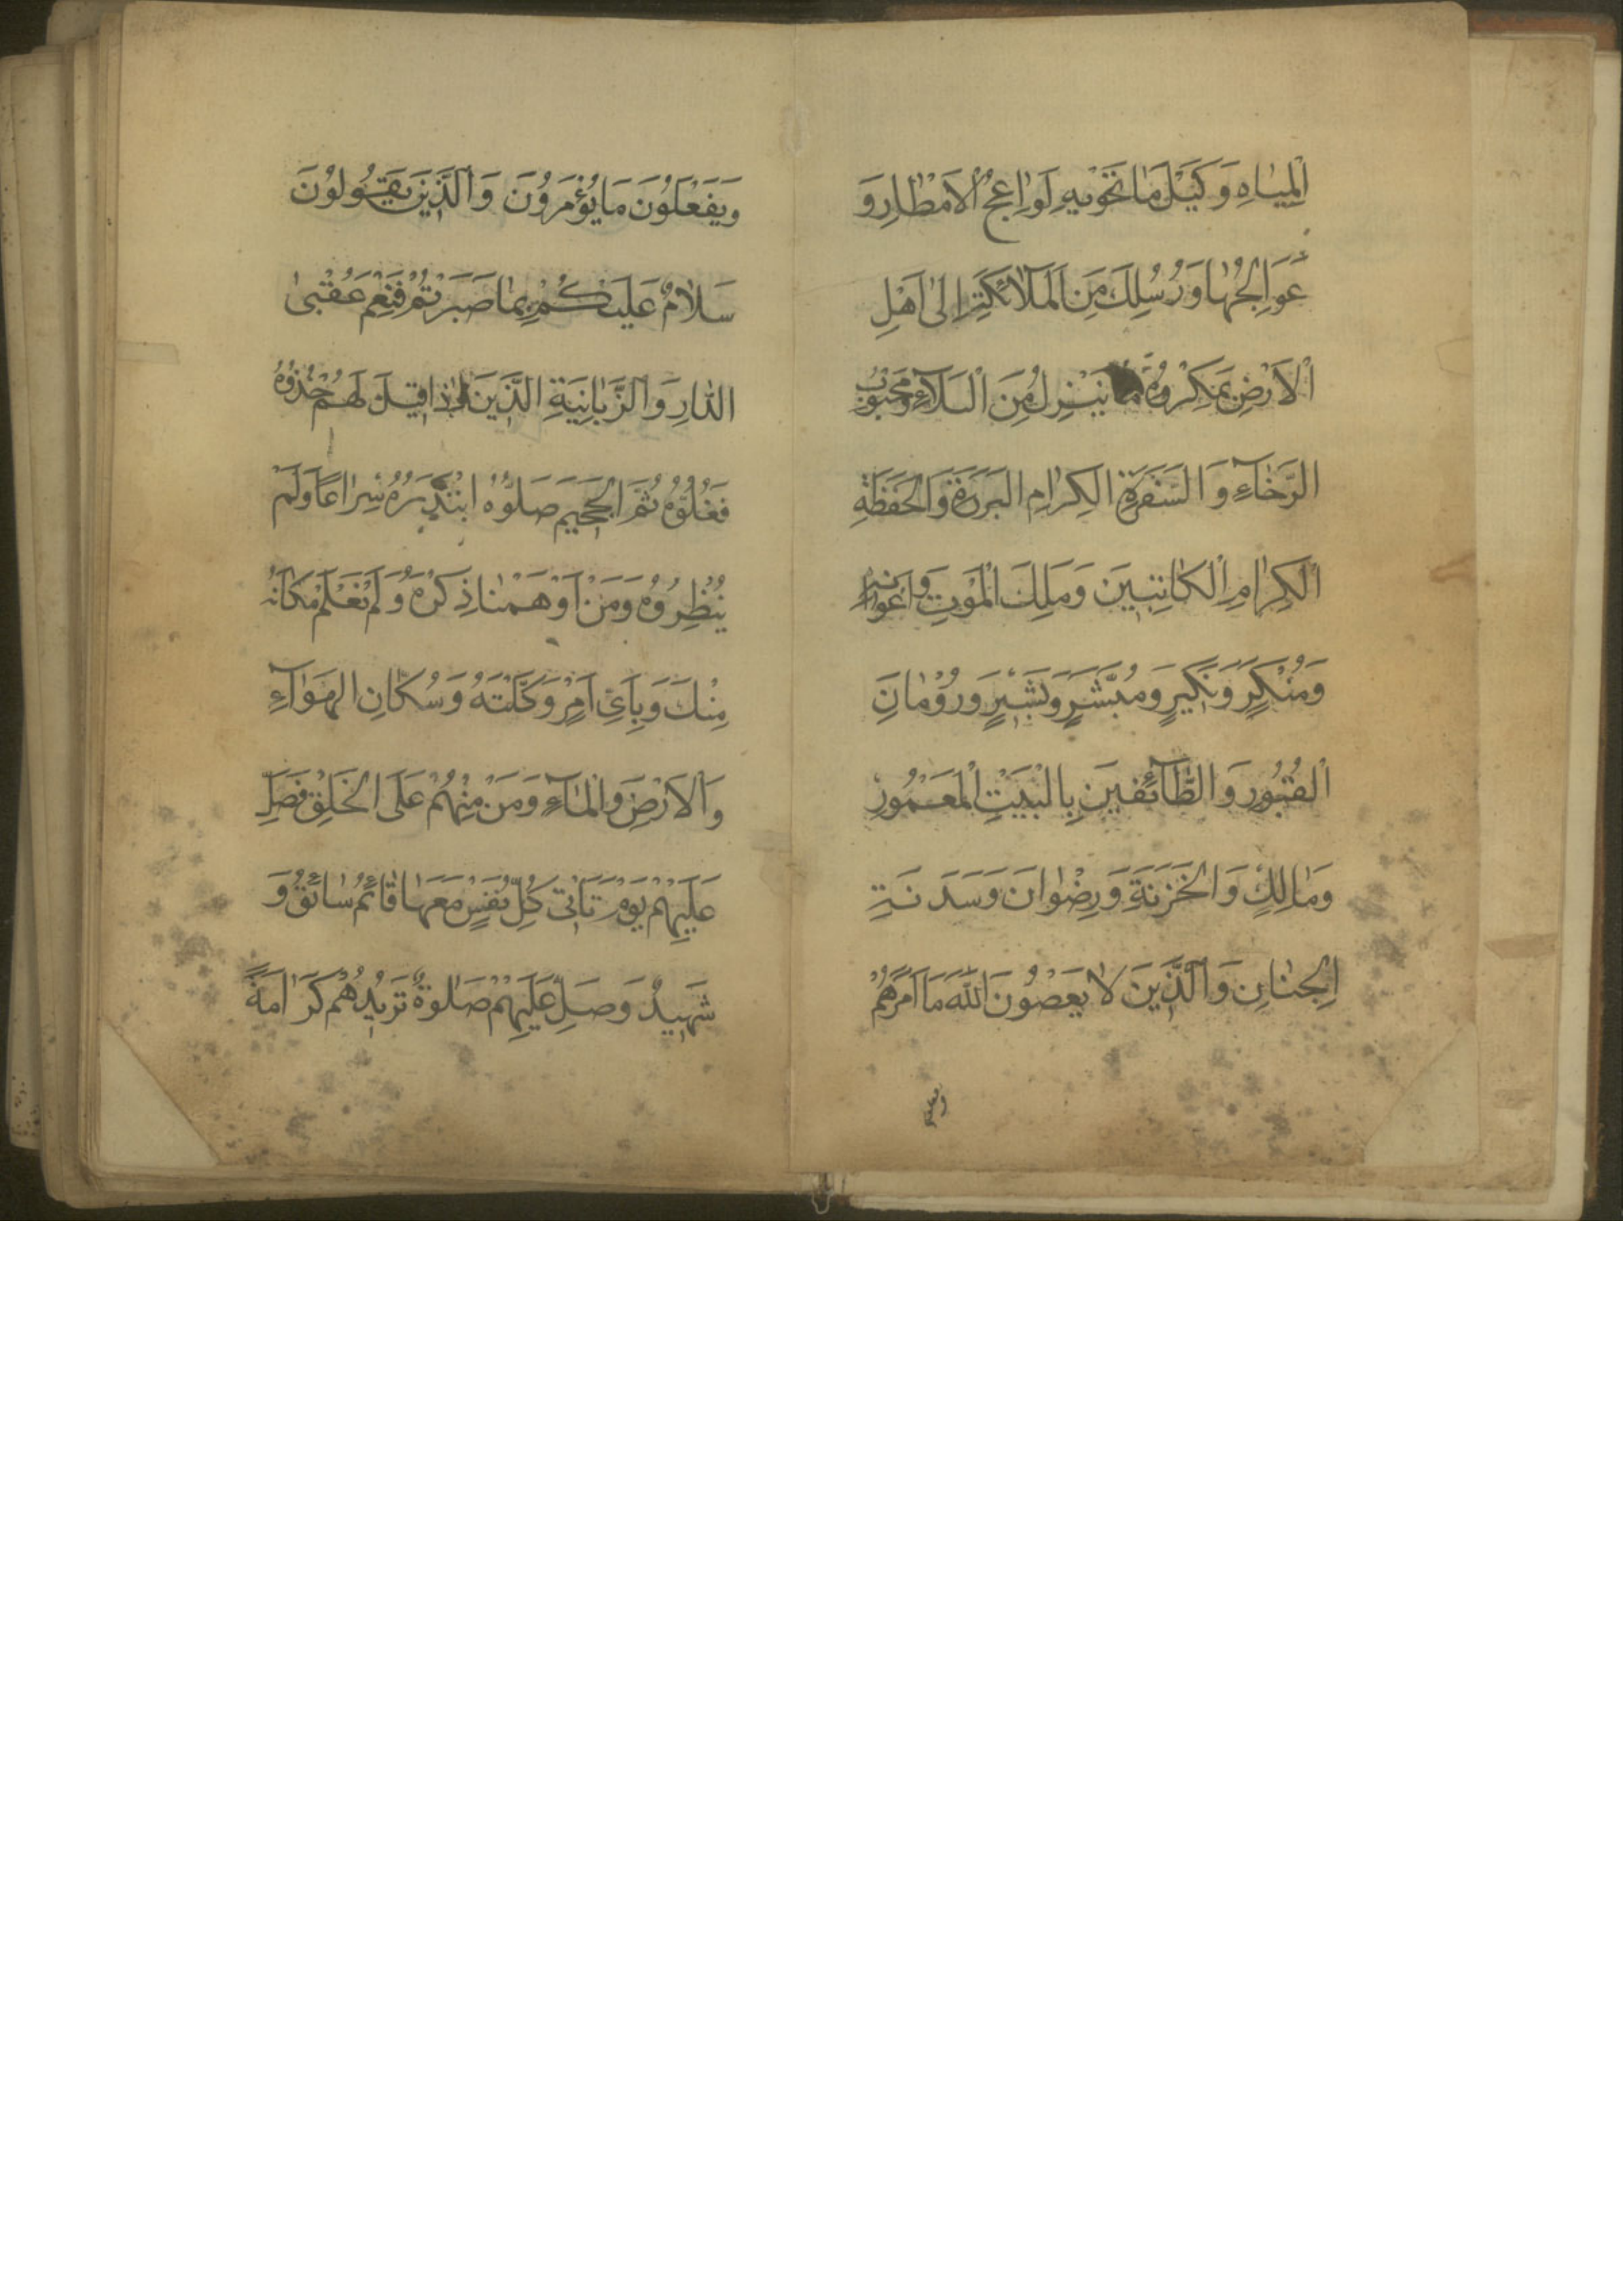 اَلْمِيَاهِ وَ كَيْلَ مَا تَحْوِيهِ لَوَاعِجُ الْاَمْطَارِ وَ
عَوَالِجُهَا وَ رُسُلِكَ مِنَ الْمَلَآئِكَةِ اِلٰى اَهْلِ
الْاَرْضِ بِمَكْرُوهِ مَا يَنْزِلُ مِنَ الْبَلَآءِ وَ مَحْبُوبِ
الرَّخَآءِ وَ السَّفَرَةِ الْكِرَامِ الْبَرَرَةِ وَ الْحَفَظَةِ
الْكِرَامِ الْكَاتِبِينَ وَ مَلَكِ الْمَوْتِ وَ اَعْوَانِهِ
وَ مُنْكَرٍ وَ نَكِيرٍ وَ مُبَشِّرٍ وَ بَشِيرٍ وَ رُوْمَانَ
الْقُبُورِ وَ الطَّآئِفِينَ بِالْبَيْتِ الْمَعْمُورِ
وَ مَالِكٍ وَ الْخَزَنَةِ وَ رِضْوَانَ وَ سَدَنَةِ
الْجِنَانِ وَ الَّذِينَ لَا يَعْصُونَ اللّٰهَ مَا اَمَرَهُمْ
وَ يَفْعَلُونَ مَا يُؤْمَرُونَ وَ الَّذِينَ يَقُولُونَ
سَلَامٌ عَلَيْكُمْ بِمَا صَبَرْتُمْ فَنِعْمَ عُقْبَى
الدَّارِ وَ الزَّبَانِيَةِ الَّذِينَ اِذَا قِيلَ لَهُمْ خُذُوهُ
فَغُلُّوهُ ثُمَّ الْجَحِيمَ صَلُّوهُ ابْتَدَرُوهُ سِرَاعًا وَ لَمْ
يُنْظِرُوهُ وَ مَنْ اَوْهَمْنَا ذِكْرَهُ وَ لَمْ نَعْلَمْ مَكَانَهُ
مِنْكَ وَ بِاَيِّ اَمْرٍ وَكَّلْتَهُ وَ سُكَّانِ الْهَوَآءِ
وَ الْاَرْضِ وَ الْمَآءِ وَ مَنْ مِنْهُمْ عَلَى الْخَلْقِ فَصَلِّ
عَلَيْهِمْ يَوْمَ تَاْتِي كُلُّ نَفْسٍ مَعَهَا قَائِمٌ سَائِقٌ وَ
شَهِيدٌ وَ صَلِّ عَلَيْهِمْ صَلٰوةً تَزِيدُهُمْ كَرَامَةً